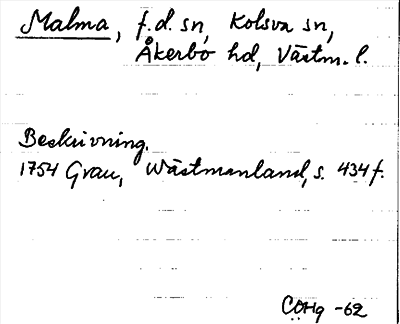 Malma, f.d. sn, Kolsva sn,
Åkerbo hd, Västm. l.
Beskrivning.
1754 Grau, Wästmanland, s. 434 f.
COHg -62